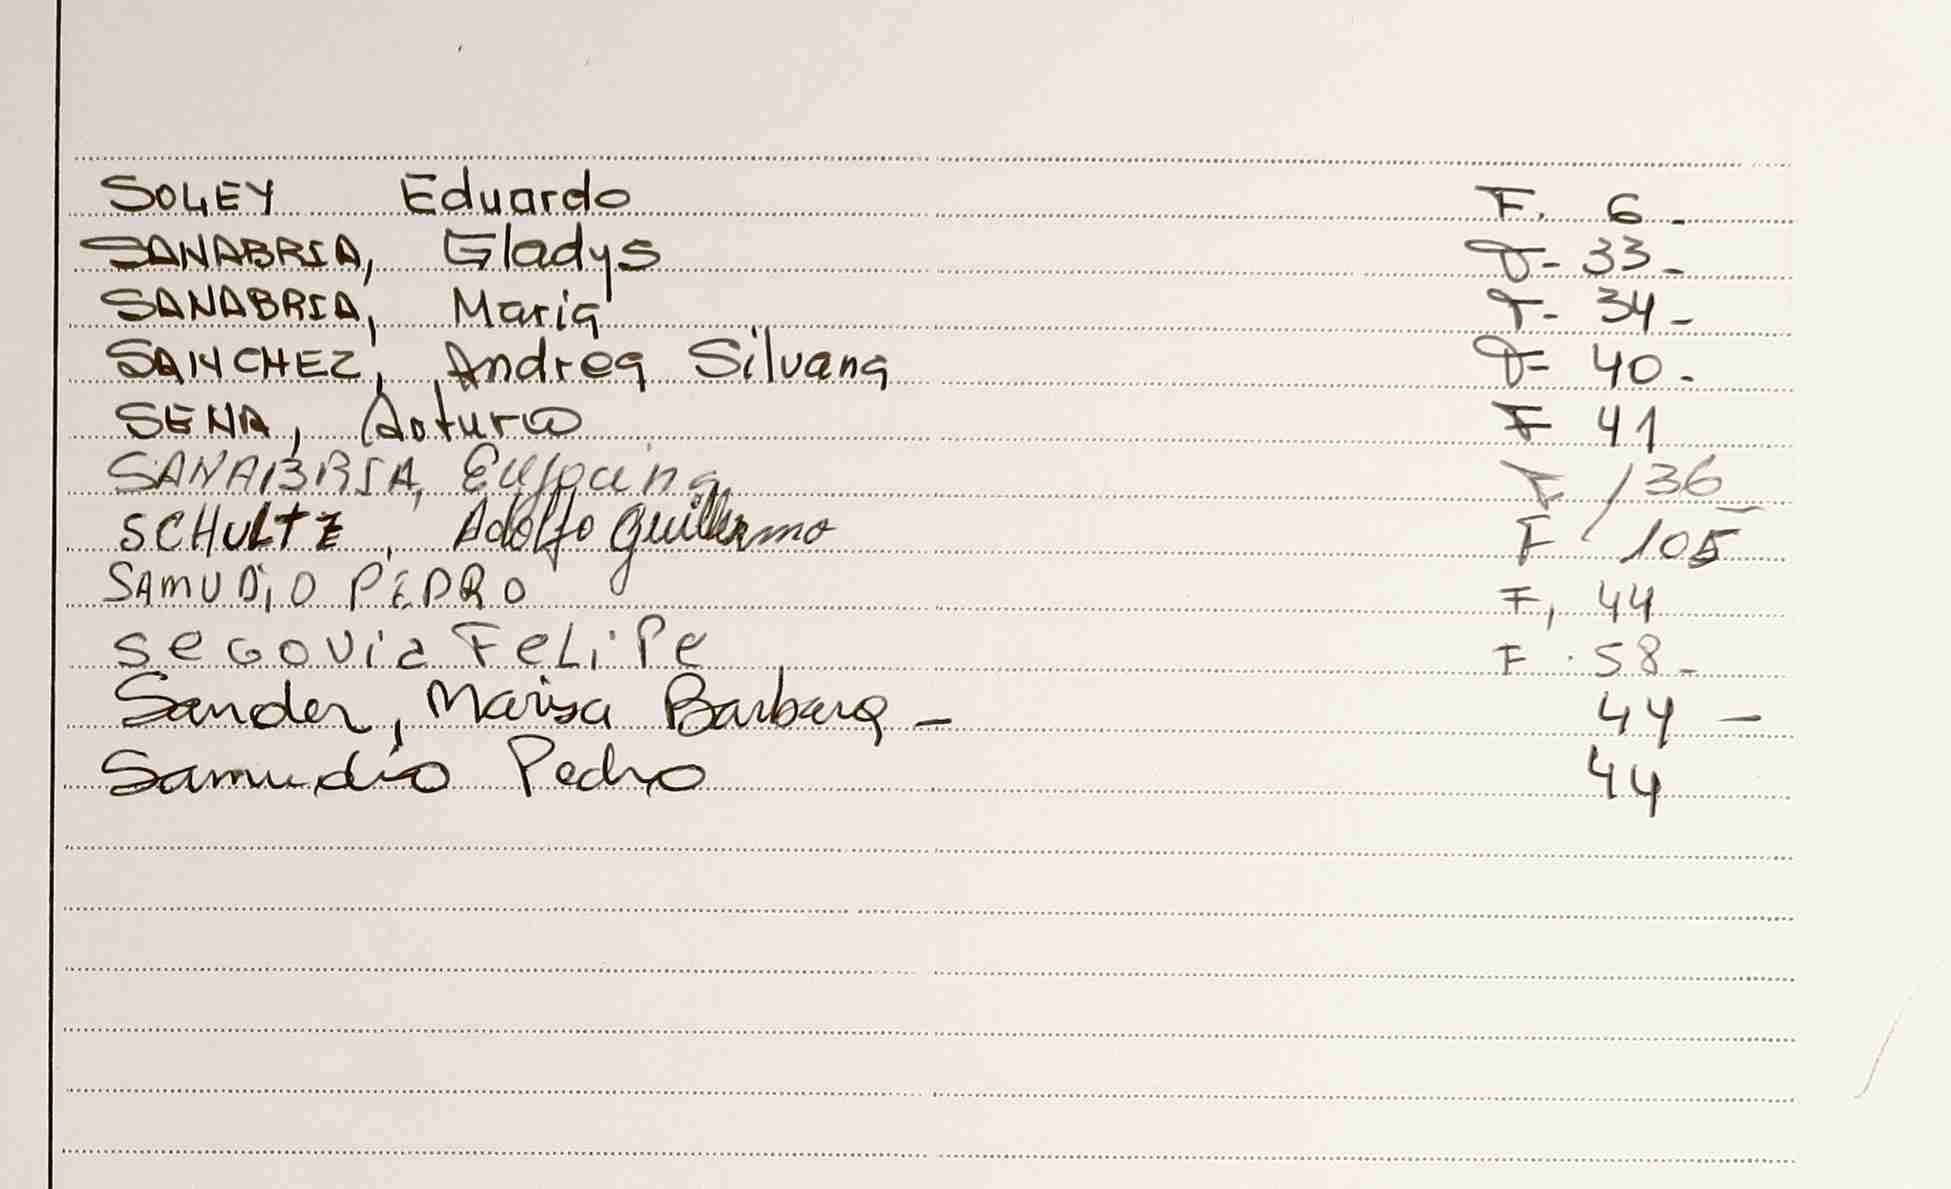 SOLEY Eduardo F. 6 -
SANABRIA, Gladys F- 33 -
SANABRIA, Maria F- 34 -
SANCHEZ, Andrea Silvana F- 40 -
SENA, Arturo F 41
SANABRIA, F /36
SCHULTZ, Adolfo Guillermo F 105
SAMUDIO PEDRO F, 44
SEGOVIA FELIPE F . 58 -
Sander, Marisa Barbara - 44 -
Samudio Pedro 44